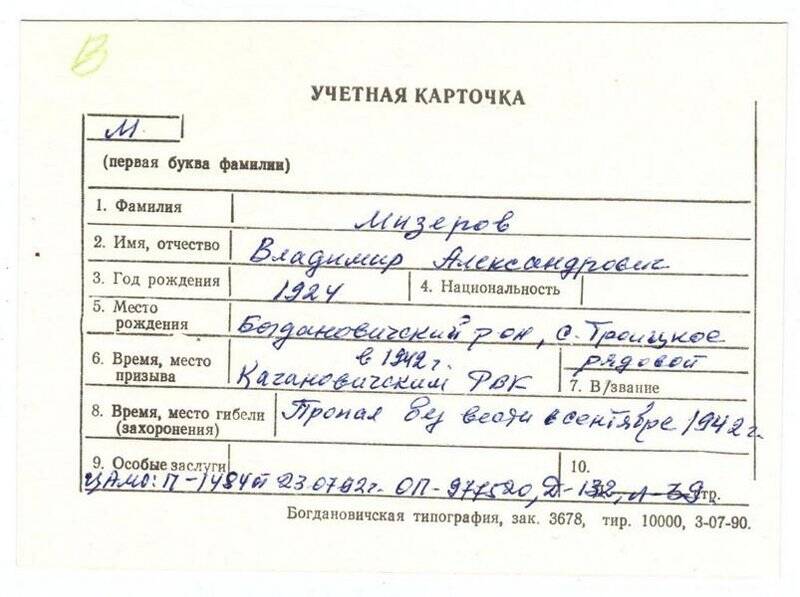 В
УЧЕТНАЯ КАРТОЧКА
М.
(первая буква фамилии)
1. Фамилия Мизеров
2. Имя, отчество Владимир Александрович
3. Год рождения 1924 4. Национальность
5. Место рождения Богдановичский р-он, с. Троицкое
6. Время, место призыва в 1942 г. Кагановичским РВК
рядовой
7. В/звание
8. Время, место гибели (захоронения) Пропал без вести в сентябре 1942 г.
9. Особые заслуги 10.
ЦАМО: П-1484 23.07.92г. ОП-977520, Д-132, л-39 тр.
Богдановичская типография, зак. 3678, тир. 10000, 3-07-90.